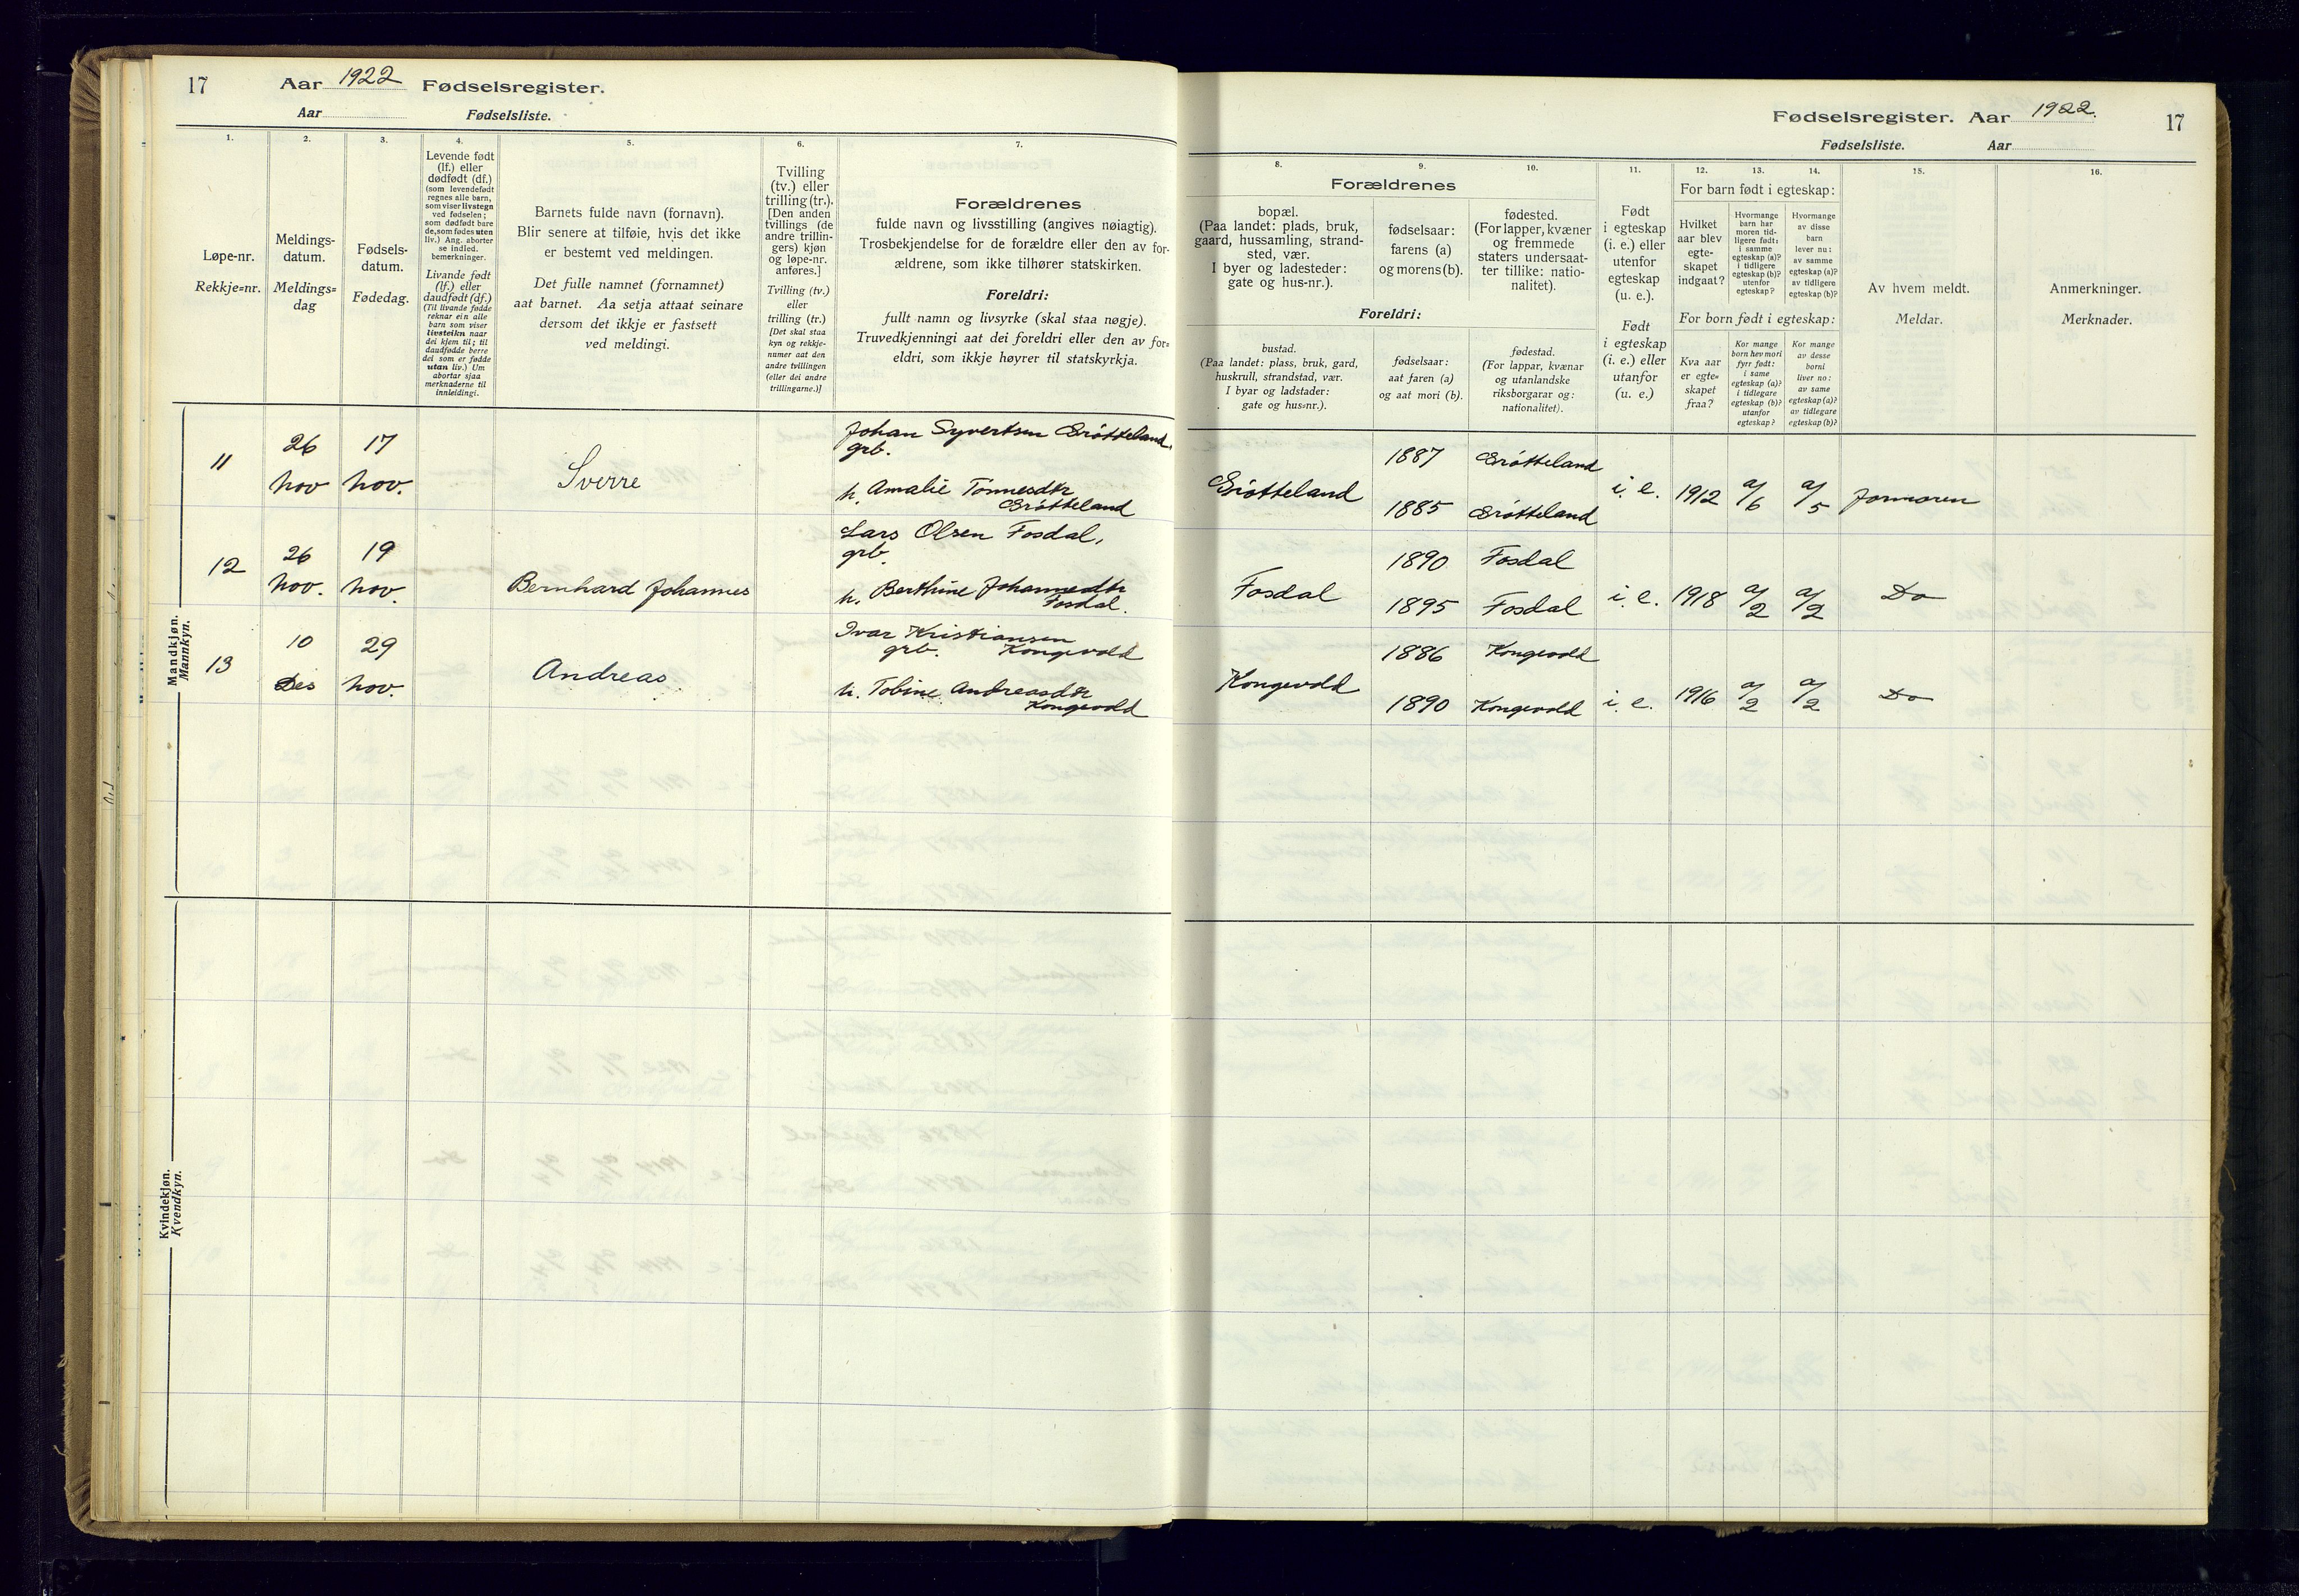 17 Aar 1922 Fødselsregister.
Aar Fødselsliste.
1. 2. 3. 4. 5. 6. 7.
Løpe-nr.
Rekkje=nr.
Meldings-
datum.
Meldings=
dag
Fødsels-
datum.
Fødedag.
Levende født
(lf.) eller
dødfødt (df.)
(som levendefødt
regnes alle barn,
som viser livstegn
ved fødselen;
som dødfødt bare
de, som fødes uten
liv.) Ang. aborter
se indled.
bemerkninger.
Livande født
(lf.) eller
daudfødt (df.)
(Til livande fødde
reknar ein alle
barn som viser
livsteikn naar
dei kjem til; til
daudfødde berre
dei som er fødde
utan liv.) Um
abortar sjaa
merknaderne til
innleidingi.
Barnets fulde navn (fornavn).
Blir senere at tilføie, hvis det ikke
er bestemt ved meldingen.
Det fulle namnet (fornamnet)
aat barnet. Aa setja attaat seinare
dersom det ikkje er fastsett
ved meldingi.
Tvilling
(tv.) eller
trilling (tr.).
[Den anden
tvillings (de
andre trillin-
gers) kjøn
og løpe-nr.
anføres.]
Tvilling (tv.)
eller
trilling (tr.)
[Det skal staa
kyn og rekkje-
numer aat den
andre tvillingen
(eller dei andre
trillingarne.)]
Forældrenes
fulde navn og livsstilling (angives nøiagtig).
Trosbekjendelse for de forældre eller den av for-
ældrene, som ikke tilhører statskirken.
Foreldri:
fullt namn og livsyrke (skal staa nøgje).
Truvedkjenningi aat dei foreldri eller den av for=
eldri, som ikkje høyrer til statskyrkja.
Mandkjøn.
Mannkyn.
11 26 nov 17 nov. Sverre
Johan Syvertsen Grøtteland.
grb.
h. Amalie Tønnesdtr
Grøtteland
12 26 nov. 19 nov. Bernhard Johannes
Lars Olsen Fosdal,
grb.
h. Berthine Johannesdtr
Fosdal.
13 10 Des 29 nov. Andreas
Ivar Kristiansen
grb. Kongevold
h. Tobine Andreasdtr
Kongevold
Kvindekjøn.
Kvendkyn.
Fødselsregister. Aar 1922. 17
Fødselsliste. Aar
8. 9. 10. 11. 12. 13. 14. 15. 16.
Forældrenes
bopæl.
(Paa landet: plads, bruk,
gaard, hussamling, strand-
sted, vær.
I byer og ladesteder:
gate og hus-nr.).
fødselsaar:
farens (a)
og morens (b).
fødested.
(For lapper, kvæner
og fremmede
staters undersaat-
ter tillike: natio-
nalitet).
Foreldri:
bustad.
(Paa landet: plass, bruk, gard,
huskrull, strandstad, vær.
I byar og ladstader:
gate og hus=nr.).
fødselsaar:
aat faren (a)
og aat mori (b).
fødestad.
(For lappar, kvænar
og utanlandske
riksborgarar og:
nationalitet).
Født
i egteskap
(i. e.) eller
utenfor
egteskap
(u. e.).
Født
i egteskap
(i. e.) eller
utanfor
(u. e.)
For barn født i egteskap:
Hvilket
aar blev
egte-
skapet
indgaat?
Hvormange
barn har
moren tid-
ligere født:
i samme
egteskap (a)?
i tidligere
egteskap (b)?
utenfor
egteskap?
Hvormange
av disse
barn
lever nu:
av samme
egteskap (a)?
av tidligere
egteskap (b)?
For born født i egteskap:
Kva aar
er egte=
skapet
fraa?
Kor mange
born hev mori
fyrr født:
i same
egteskap (a)?
i tidlegare
egteskap (b)?
utanfor
egteskap?
Kor mange
av desse
borni
liver no:
av same
egteskap (a)?
av tidlegare
egteskap (b)?
Av hvem meldt.
Meldar.
Anmerkninger.
Merknader.
Grøtteland 1887 Grøtteland
1885 Grøtteland
i. e. 1912 a/6 a/5 Jormoren
Fosdal 1890 Fosdal
1895 Fosdal
i. e. 1918 a/2 a/2 Do
Kongevold 1886 Kongevold
1890 Kongevold
i. e. 1916 a/2 a/2 Do